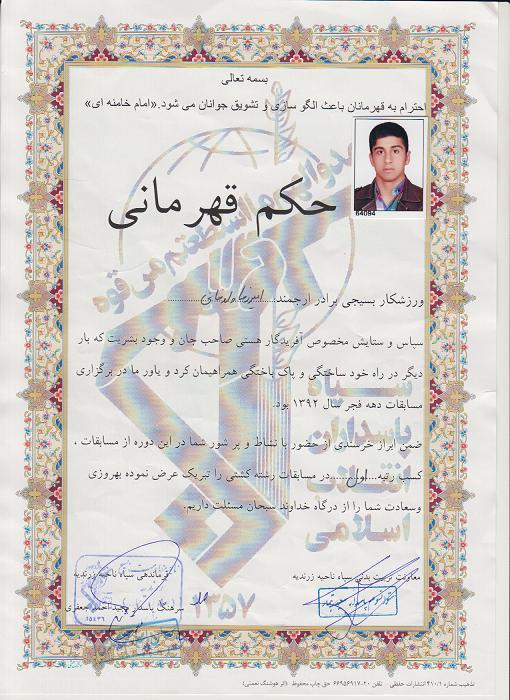 بسمه تعالی
احترام به قهرمانان باعث الگو سازی و تشویق جوانان می شود.«امام خامنه ای»
64094
حکم قهرمانی
ورزشکار بسیجی برادر ارجمند:
سپاس و ستایش مخصوص آفریدگار هستی صاحب جان و وجود بشریت که بار
دیگر در راه خود ساختگی و پاک باختگی همراهیمان کرد و یاور ما در برگزاری
مسابقات دهه فجر سال ۱۳۹۲ بود.
ضمن ابراز خرسندی از حضور با نشاط و پر شور شما در این دوره از مسابقات ،
کسب رتبه ... اول ... در مسابقات رشته کشتی را تبریک عرض نموده بهروزی
وسعادت شما را از درگاه خداوند سبحان مسئلت داریم.
سپاه
پاسداران
انقلاب
اسلامی
۱۳۵۷
معاونت تربیت بدنی سپاه ناحیه زرندیه
فرماندهی سپاه ناحیه زرندیه
سرهنگ پاسدار
جعفری
تذهیب شماره ۴۱۰/۱ انتشارات حفظی تلفن ۲۰-۶۶۹۵۶۹۱۷ حق چاپ محفوظ (اثر هوشنگ نعمتی)